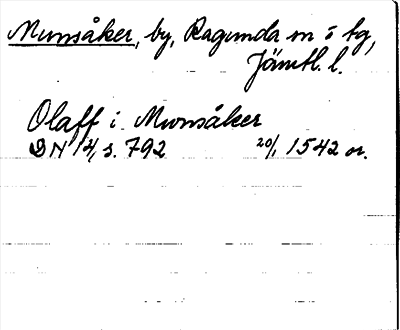 Munsåker, by, Ragunda sn o tg,
Jämtl. l.
Olaff i Munsåker
DN 14, s. 792 20/1 1542 or.